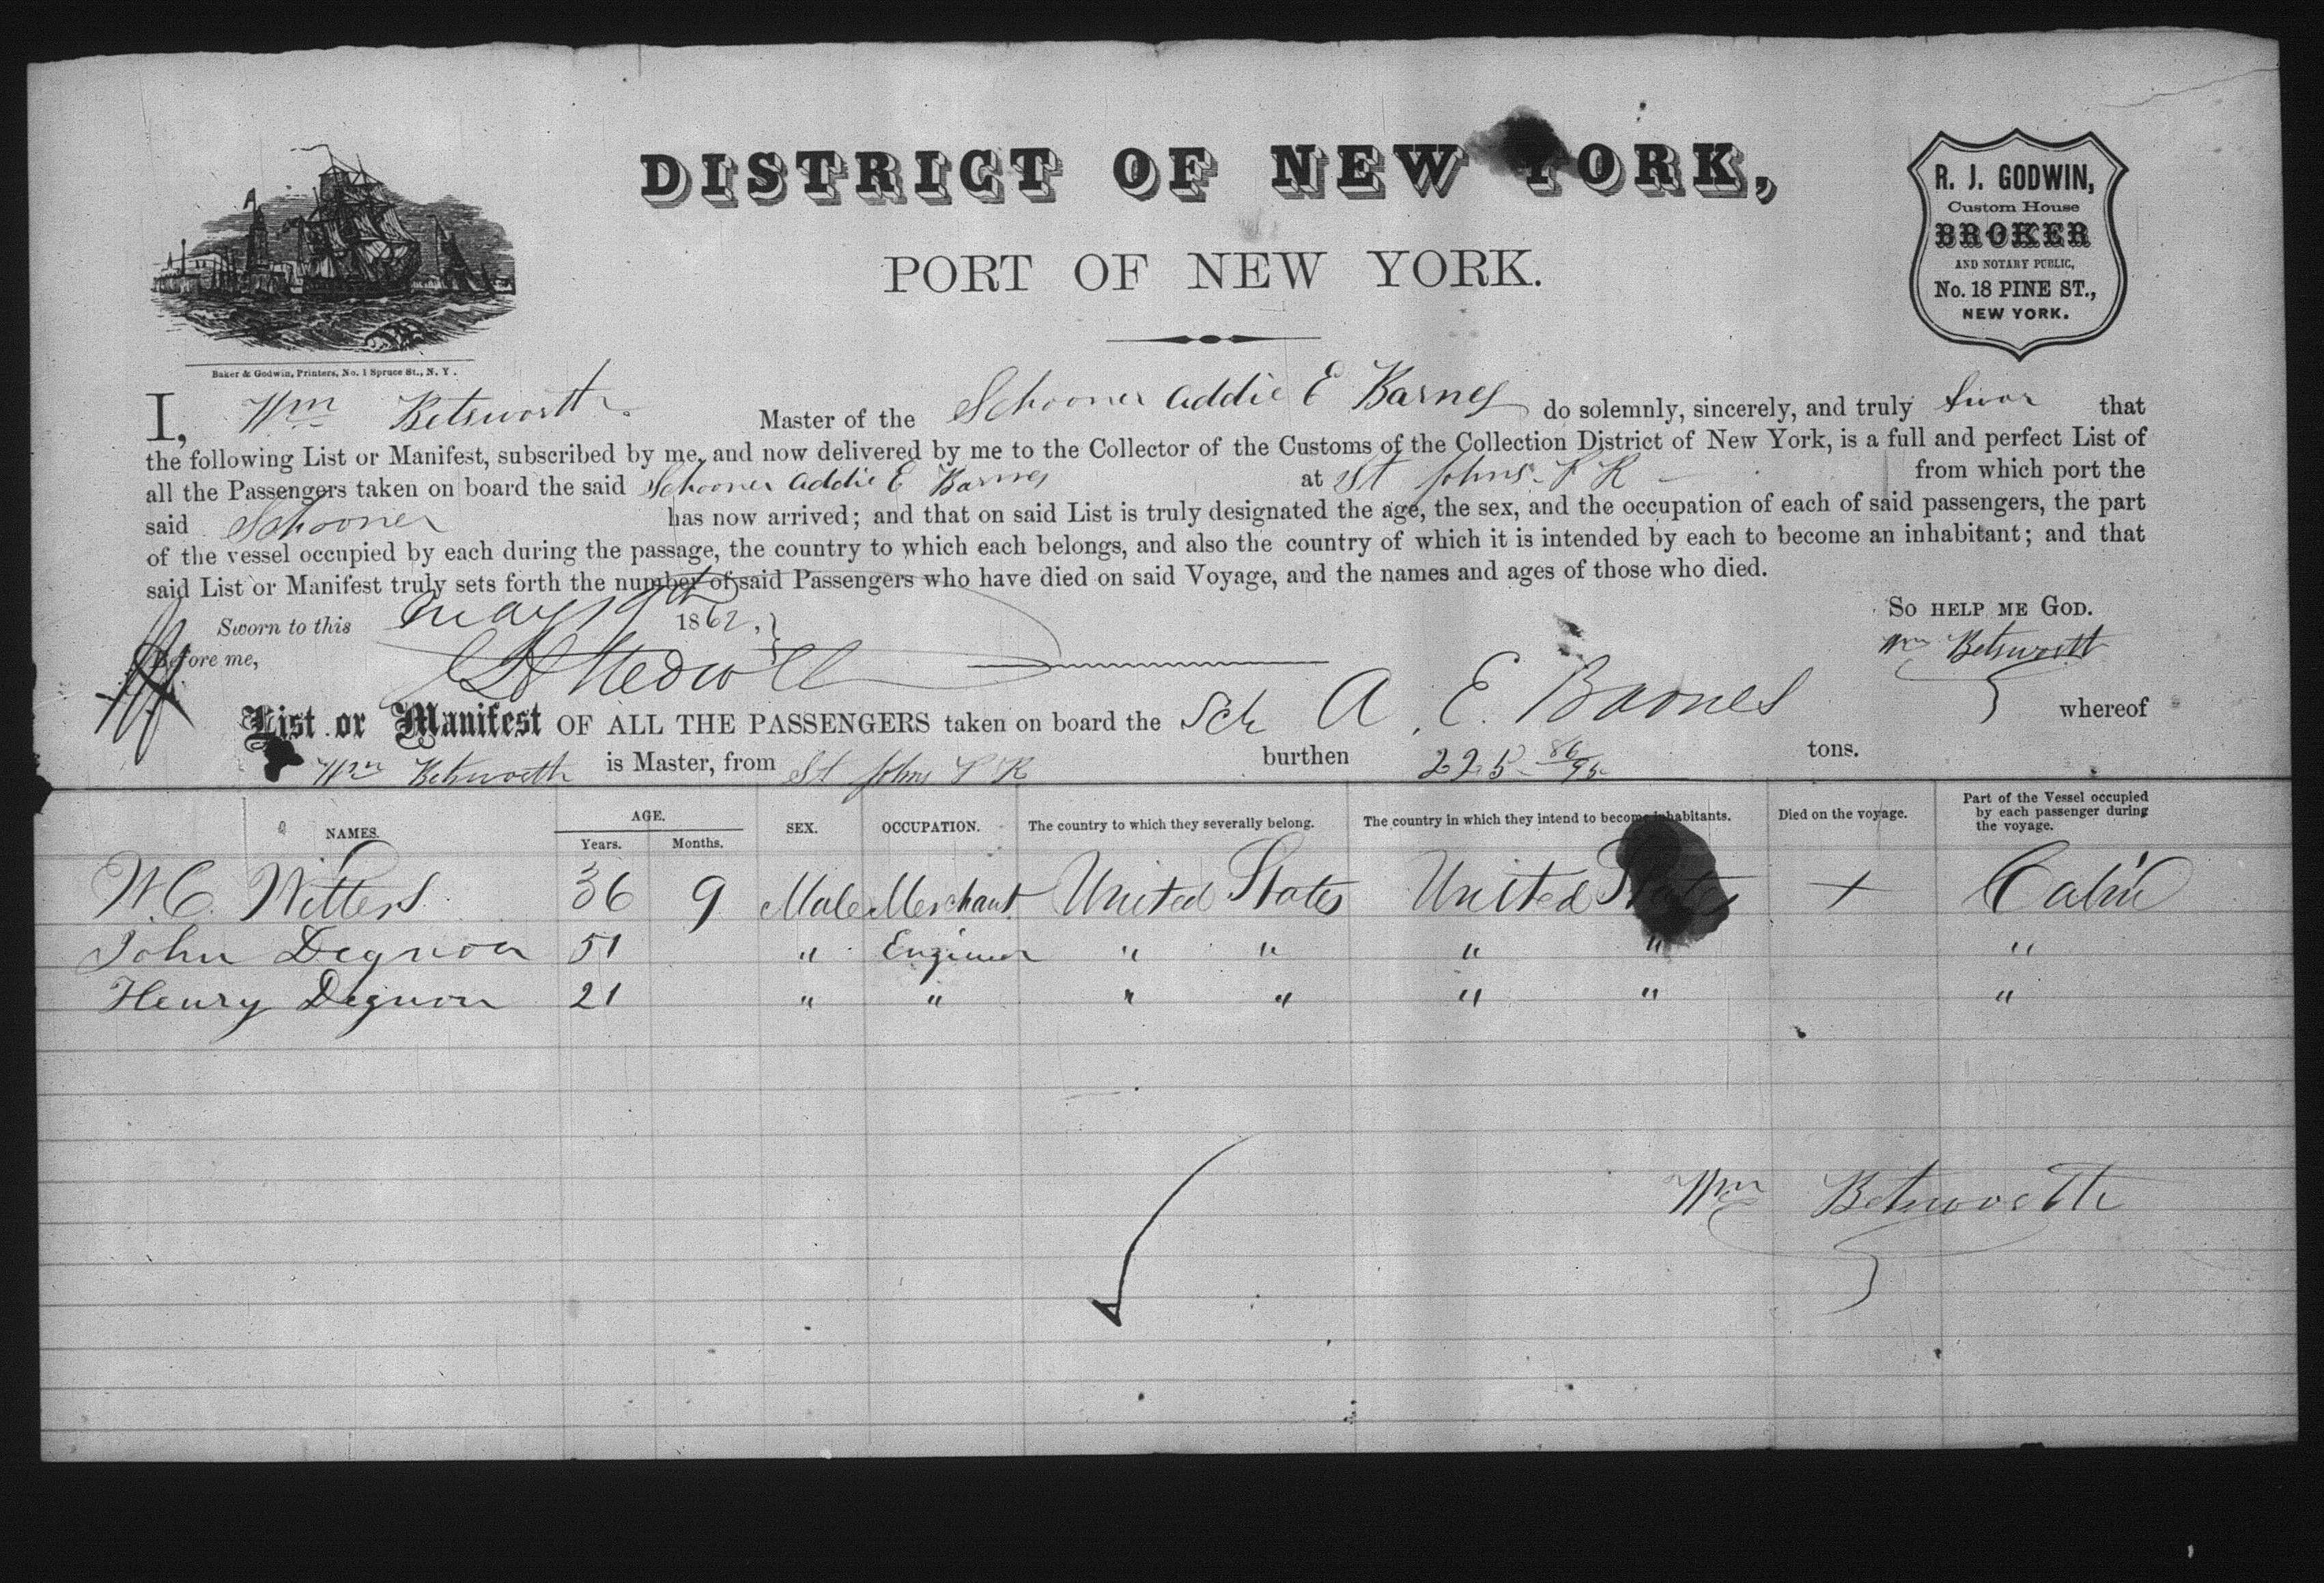 DISTRICT OF NEW YORK,
PORT OF NEW YORK.
R. J. GODWIN,
Custom House
BROKER
AND NOTARY PUBLIC,
No. 18 PINE ST.,
NEW YORK.
Baker & Godwin, Printers, No. 1 Spruce St., N. Y.
I, Wm Betsworth Master of the Schooner Addie E Barnes do solemnly, sincerely, and truly swar that
the following List or Manifest, subscribed by me, and now delivered by me to the Collector of the Customs of the Collection District of New York, is a full and perfect List of
all the Passengers taken on board the said Schooner Addie E Barnes at St Johns P R from which port the
said Schooner has now arrived; and that on said List is truly designated the age, the sex, and the occupation of each of said passengers, the part
of the vessel occupied by each during the passage, the country to which each belongs, and also the country of which it is intended by each to become an inhabitant; and that
said List or Manifest truly sets forth the number of said Passengers who have died on said Voyage, and the names and ages of those who died.
SO HELP ME GOD.
Sworn to this May 19th 1862,
Wm Betsworth
Before me,
List or Manifest OF ALL THE PASSENGERS taken on board the Sch A. E. Barnes whereof
Wm Betsworth is Master, from St Johns P R burthen 225 86/95 tons.
NAMES. AGE. Years. Months. SEX. OCCUPATION. The country to which they severally belong. The country in which they intend to become inhabitants. Died on the voyage. Part of the Vessel occupied by each passenger during the voyage.
W. C. Witters 36 9 Male Merchant United States United States + Cabin
John Degnon 51 " Engineer " " " " "
Henry Degnon 21 " " " " " " "
Wm Betsworth